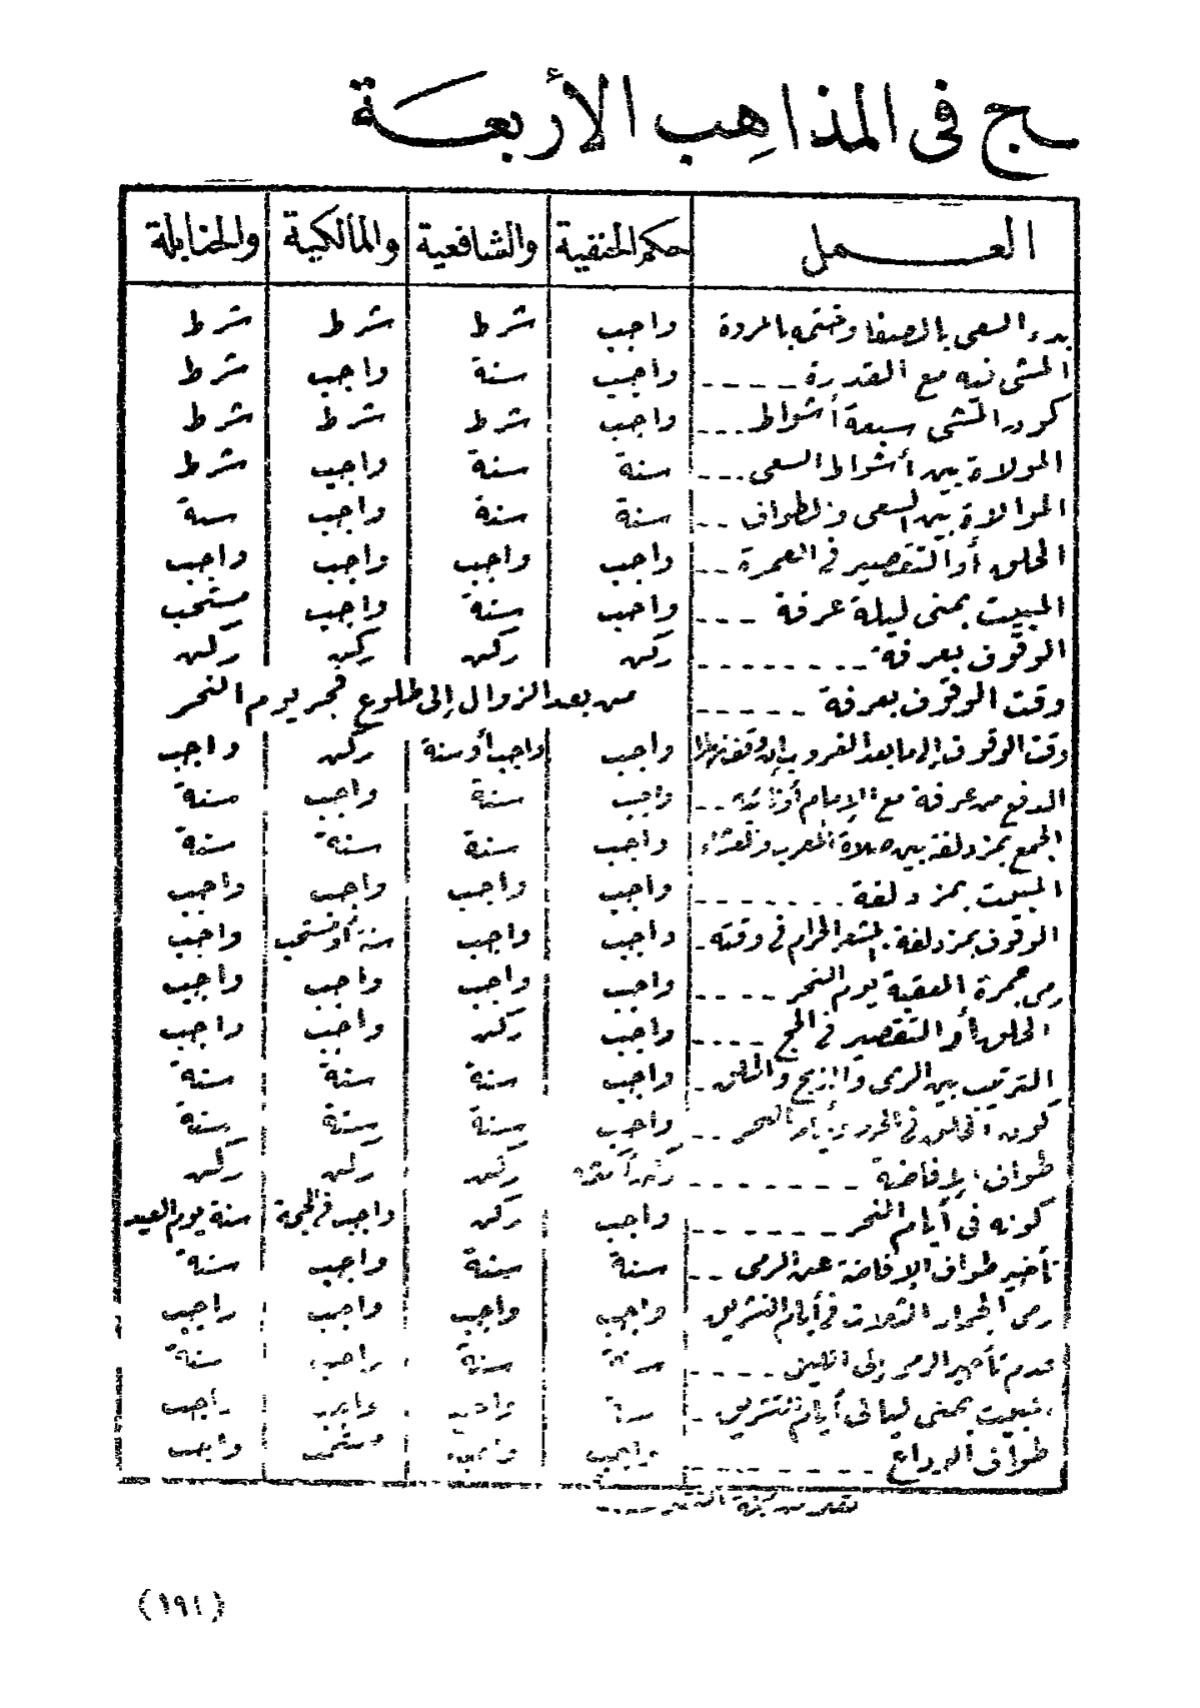 ـج فى المذاهب الأربعة
العمل حكم الحنفية والشافعية والمالكية والحنابلة
بدء السعى بالصفا وختمه بالمروة واجب شرط شرط شرط
المشى فيه مع القدرة ----- واجب سنة واجب شرط
كون المشى سبعة أشواط ... واجب شرط شرط شرط
المولاة بين أشواط السعى .... سنة سنة واجب شرط
الموالاة بين السعى والطواف -- سنة سنة واجب سنة
الحلق أو التقصير فى العمرة -- واجب واجب واجب واجب
المبيت بمنى ليلة عرفة --- واجب سنة واجب مستحب
الوقوف بعرفة -------- ركن ركن ركن ركن
وقت الوقوف بعرفة ----- من بعد الزوال إلى طلوع فجر يوم النحر
وقت الوقوف إلى ما بعد الغروب إن وقف نهارا واجب واجب أو سنة ركن واجب
الدفع من عرفة مع الإمام أو نائبه -- واجب سنة واجب سنة
الجمع بمزدلفة بين صلاة المغرب والعشاء واجب سنة سنة سنة
المبيت بمزدلفة ------- واجب واجب واجب واجب
الوقوف بمزدلفة بالمشعر الحرام فى وقته - واجب واجب سنة أو مستحب واجب
رمى جمرة العقبة يوم النحر ---- واجب واجب واجب واجب
الحلق أو التقصير فى الحج ---- واجب ركن واجب واجب
الترتيب بين الرمى والذبح والحلق - واجب سنة سنة سنة
كون الحلق فى الحرم وأيام النحر -- واجب سنة سنة سنة
طواف الإفاضة ------- ركن ركن ركن
كونه فى أيام النحر ------- واجب ركن واجب فى الحجة سنة يوم العيد
تأخير طواف الإفاضة عن الرمى -- سنة سنة واجب سنة
رمى الجمار الثلاث فى أيام التشريق واجب واجب واجب واجب
عدم تأخير الرمى إلى الليل ---- سنة سنة واجب سنة
المبيت بمنى ليالى أيام التشريق - سنة واجب واجب واجب
طواف الوداع ------- واجب واجب مستحب واجب
(١٩١)